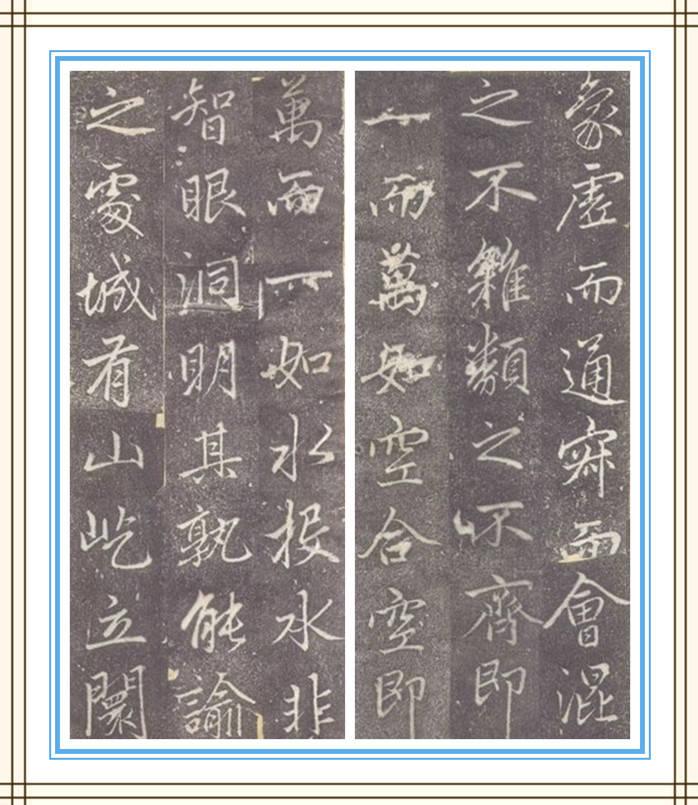 象虛而通寂而會混
之不雜類之不齊即
一而萬如空合空即
萬而一如水投水非
智眼洞明其孰能諭
之處城有山屹立闤